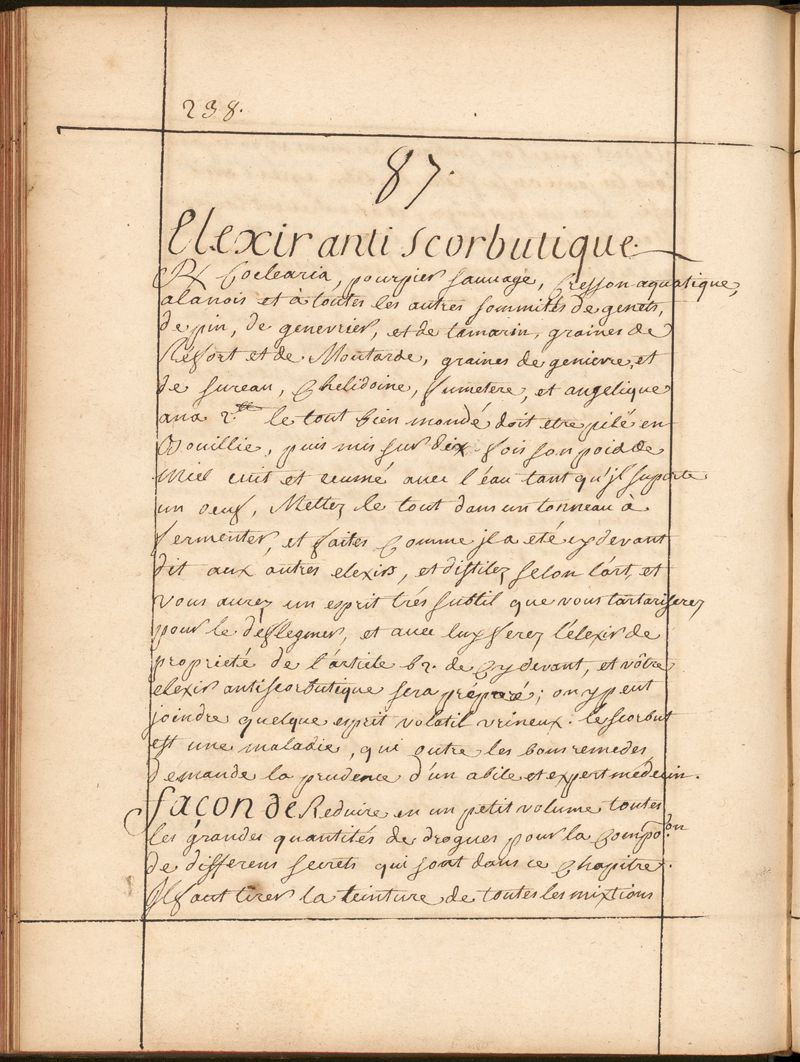 238.
87.
Elexir anti scorbutique.
℞ Coclearia, pourpier sauvage, Cresson aquatique,
alanois et à toutes les autres sommités de genets,
de pin, de genevrier, et de tamarin, graines de
Réffort et de Moutarde, graines de genievre, et
de sureau, Chelidoine, fumetere, et angelique
ana 2. le tout bien mondé doit etre pilé en
Bouillie, puis mis sur dix fois son poid de
Miel cuit et ecumé avec l'éau tant qu'jl suporte
un oeuf, Mettez le tout dans un tonneau à
fermenter, et faites Comme jl a eté cy devant
dit aux autres elexirs, et distilez selon l'art, et
vous aurez un esprit trés subtil que vous tartariserez
pour le déflegmer, et avec luy ferez l'élexir de
proprieté de l'article 62. de Cy devant, et vôtre
elexir antiscorbutique sera préparé; on y peut
joindre quelque esprit volatil vrineux: le scorbut
est une maladie, qui outre les bons remedes,
demande la prudence d'un abile et expert médecin.
façon de Reduire en un petit volume toutes
les grandes quantités de drogues pour la Compo.on
de differens secrets qui sont dans ce Chapitre.
Jl faut tirer la teinture de toutes les mixtions